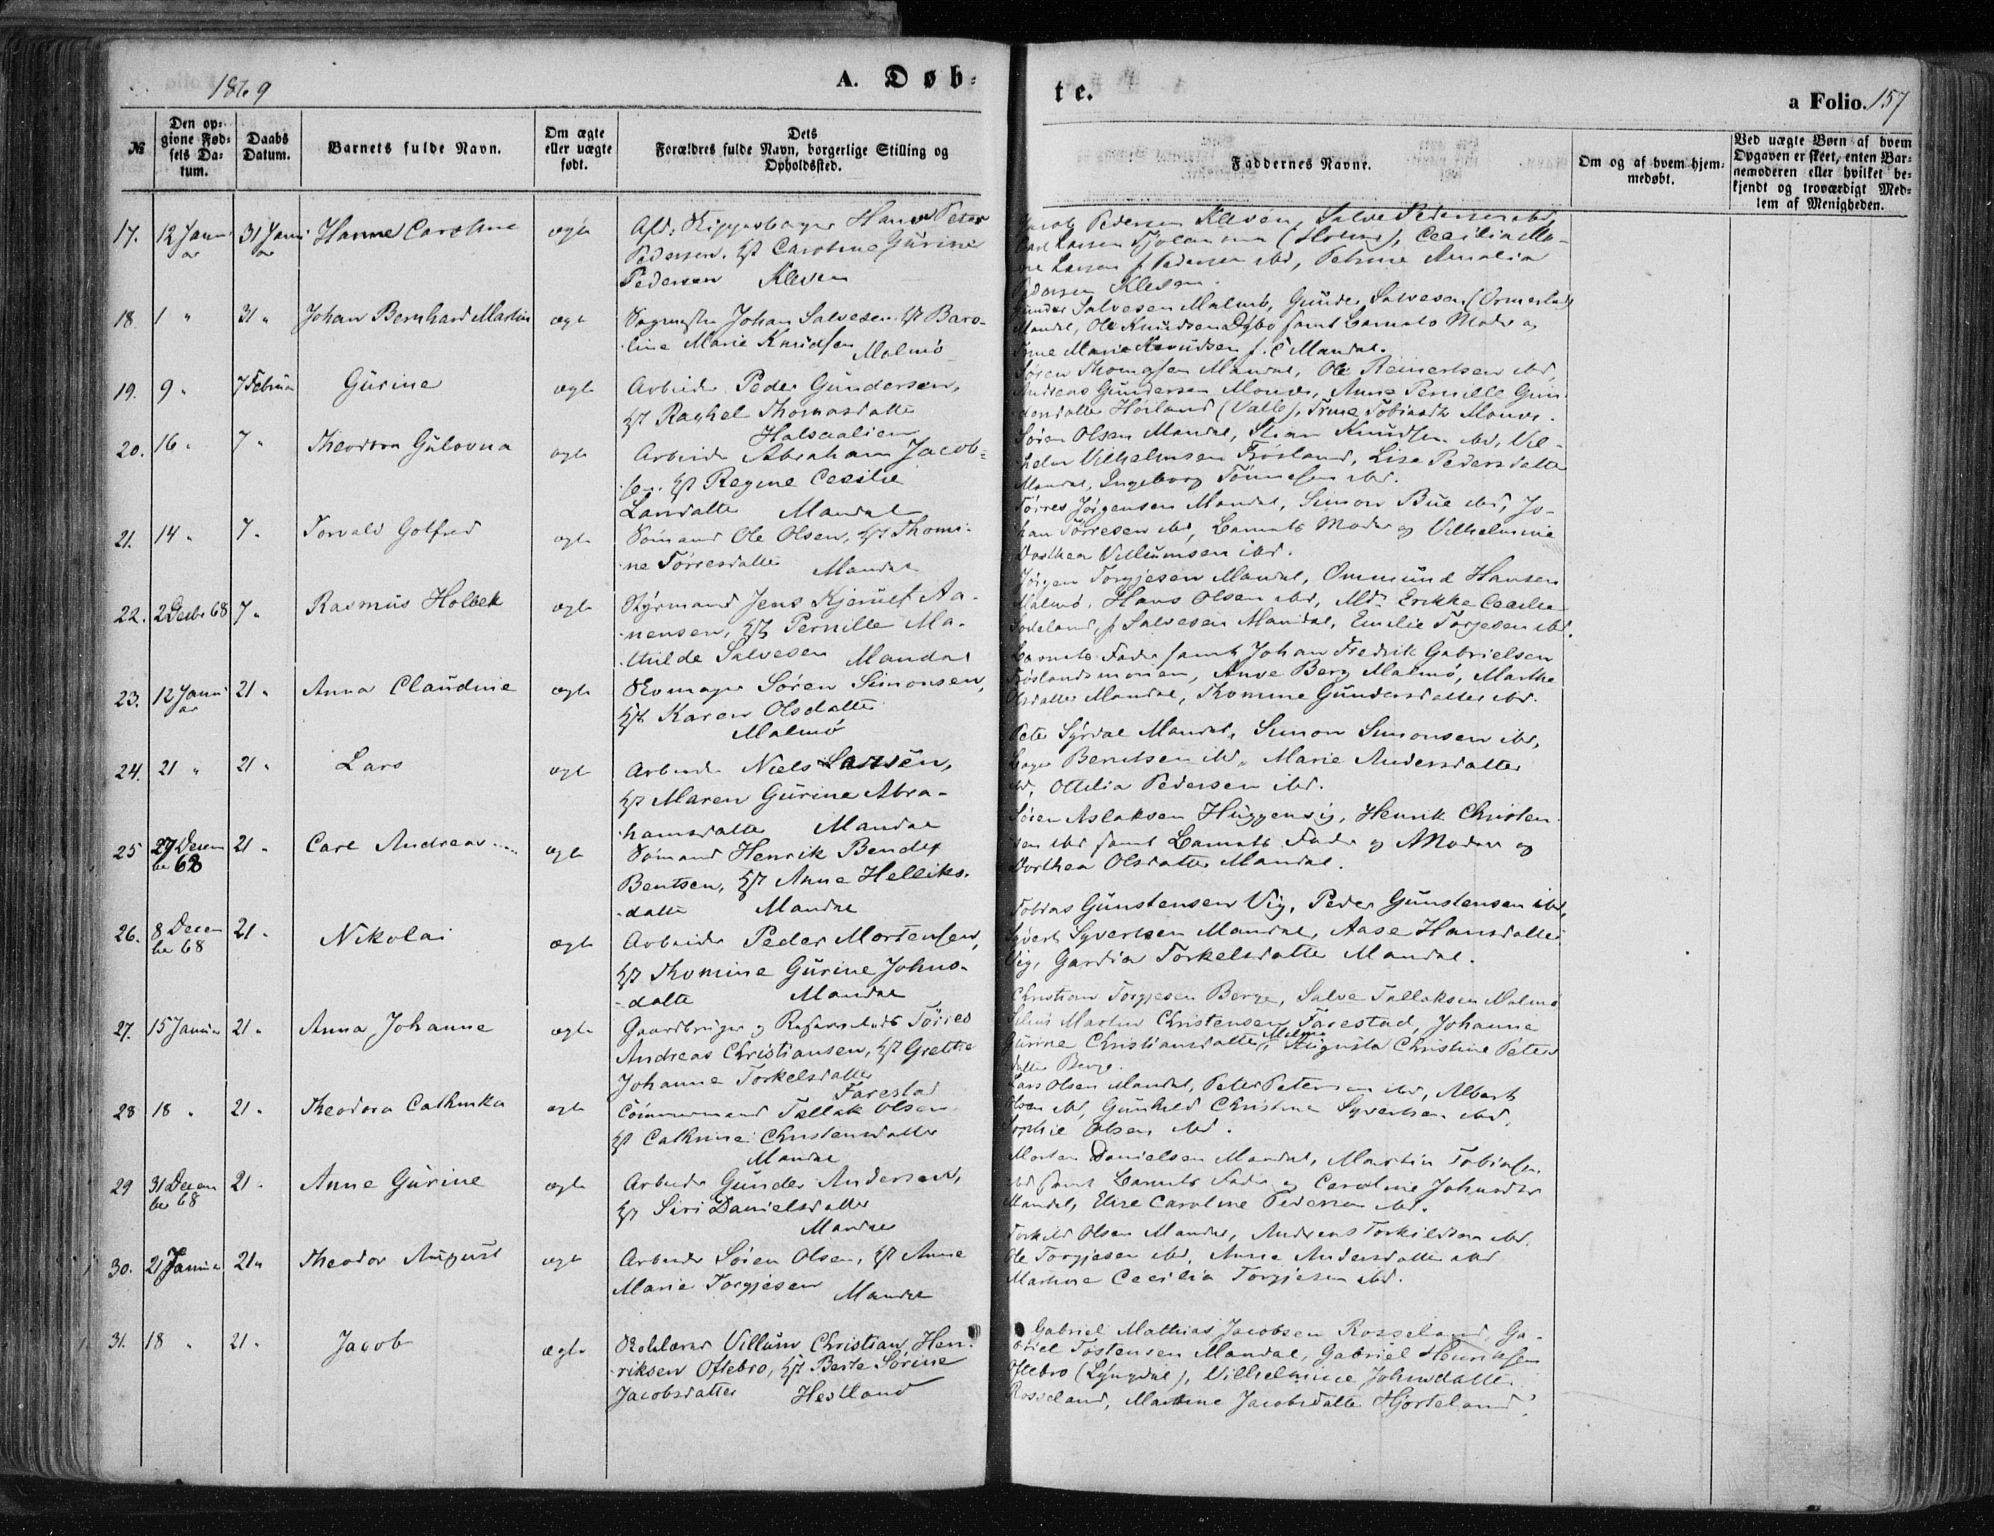 1869
A. Døb=
te.
a Folio. 157
№
Den op=
givne Fød=
sels Da=
tum.
Daabs
Datum.
Barnets fulde Navn.
Om ægte
eller uægte
født.
Dets
Forældres fulde Navn, borgerlige Stilling og
Opholdssted.
Faddernes Navne.
Om og af hvem hjem=
medøbt.
Ved uægte Børn af hvem
Opgaven er skeet, enten Bar=
nemoderen eller hvilket be=
kjendt og troværdigt Med=
lem af Menigheden.
17. 12 Janu 31 Janu Hanne Caroline ægte Afd. Hans Peter
ar ar
Pedersen, Caroline Gurine
Pedersen Kleven
Jacob Pedersen Kleven, Salve Pedersen ibd,
Carl Larsen (Holme), Cecilia Ma-
Larsen f. Pedersen ibd, Petrine Amalia
Pedersen Kleven.
18. 1 " 31 " Johan Bernhard Martin ægte Johan Salvesen Baro-
line Marie Knudsen
Malmø
Gunder Salvesen Malmø, Gunder Salvesen
Mandal, Ole Knudsen Dybo samt Barnets Moder og
Trine Marie Knudsen Mandal.
19. 9 " 7 Februar Gurine ægte Arbeider Peder Gundersen,
Rachel Thomasdatter
Halsaalien
Søren Thomasen Mandal, Ole Reinertsen ibd,
Andreas Gundersen Mones, Anne Pernille Gun-
dersdatter Hörland (Valle), Trine Tobiasdtr Mones.
20. 16 " 7 " Theodora Gulovna ægte Arbeider Abraham Jacob=
sen, Regine Cecilie
Larsdatter Mandal
Søren Olsen Mandal, Stian Knudsen ibd, Vil-
helm Vilhelmsen Frøsland, Lise Pedersdatter
Mandal, Ingeborg Tønnesen ibd.
21. 14 " 7 " Torvald Gotfred ægte Sømand Ole Olsen, Thomi-
ne Tørresdatter Mandal
Tørres Jørgensen Mandal, Simon Bue ibd, Jo-
han Tørresen ibd, Barnets Moder og Vilhelmine
Dorthea Villumsen ibd.
22. 2 Decbr 68 7 " Rasmus Holbek ægte Styrmand Jens Kjerulf Aa-
nensen, Pernille Ma-
thilde Salvesen Mandal
Jørgen Torgjesen Mandal, Ommund Hansen
Malmø, Hans Olsen ibd, Md. Erikke Cecilie
f. Salvesen Mandal, Emilie Torgjesen ibd.
23. 12 Janu 21 " Anna Claudine ægte Skomager Søren Simonsen,
ar
Karen Olsdatter
Malmø
Barnets Fader samt Johan Fredrik Gabrielsen
Frøslandsmonien, Anve Berg Malmø, Marthe
Olsdatter Mandal, Romine Gundersdatter ibd.
24. 21 " 21 " Lars ægte Arbeider Niels Larsen,
Maren Gurine Abra-
hamsdatter Mandal
Peter Syrdal Mandal, Simon Simonsen ibd,
Berntsen ibd, Marie Andersdatter
ibd, Ottilia Pedersen ibd.
25 27 Decem 21 " Carl Andreas ægte Sømand Henrik Bendix
ber 68
Bentsen, Anne Helliks-
datter Mandal
Søren Aslaksen Huggenvig, Henrik Christen-
sen ibd samt Barnets Fader og Moder og
Dorthea Olsdatter Mandal.
26. 8 Decem 21 " Nikolai ægte Arbeider Peder Mortensen,
ber 68
Romine Gurine Johns-
datter Mandal
Tobias Gunstensen Vig, Peder Gunstensen ibd,
Syvert Syvertsen Mandal, Aase Hansdatter
Vig, Gardia Torkelsdatter Mandal.
27. 15 Januar 21 " Anna Johanne ægte Gaardbruger og Tørres
Andreas Christiansen, Grethe
Johanne Torkelsdatter
Farestad
Christian Torgjesen Berge, Salve Tallaksen Malmø
Martin Christensen Farestad, Johanne
Gurine Christiansdatter Malmø, Augusta Christine Peters
datter Berge.
28 18 " 21 " Theodora Cathinka ægte Tømmermand Tallak Olsen
Cathrine Christensdatter
Mandal
Lars Olsen Mandal, Peter Petersen ibd, Albert
Olsen ibd, Gunhild Christine Syvertsen ibd,
Sophie Olsen ibd.
29 31 Decem 21 " Anne Gurine ægte Arbeider Gunder Andersen,
ber 68
Siri Danielsdatter
Mandal
Morten Danielsen Mandal, Martin Tobiasen
ibd samt Barnets Fader og Caroline Johnsdtr
Mandal, Elise Caroline Pedersen ibd.
30. 21 Januar 21 " Theodor August ægte Arbeider Søren Olsen, Anne
Marie Torgjesen
Mandal
Torkild Olsen Mandal, Andreas Torkildsen ibd,
Ole Torgjesen ibd, Anne Andersdatter ibd
Martine Cecilia Torgjesen ibd.
31. 18 " 21 " Jacob ægte Skolelærer Villum Christian Hen-
riksen Oftebro, Berte Sørine
Jacobsdatter Hestland
Gabriel Mathias Jacobsen Rosseland, Ga-
briel Tostensen Mandal, Gabriel Henriksen
Oftebro (Lyngdal), Vilhelmine Johnsdatter
Rosseland, Martine Jacobsdatter Hjorteland.